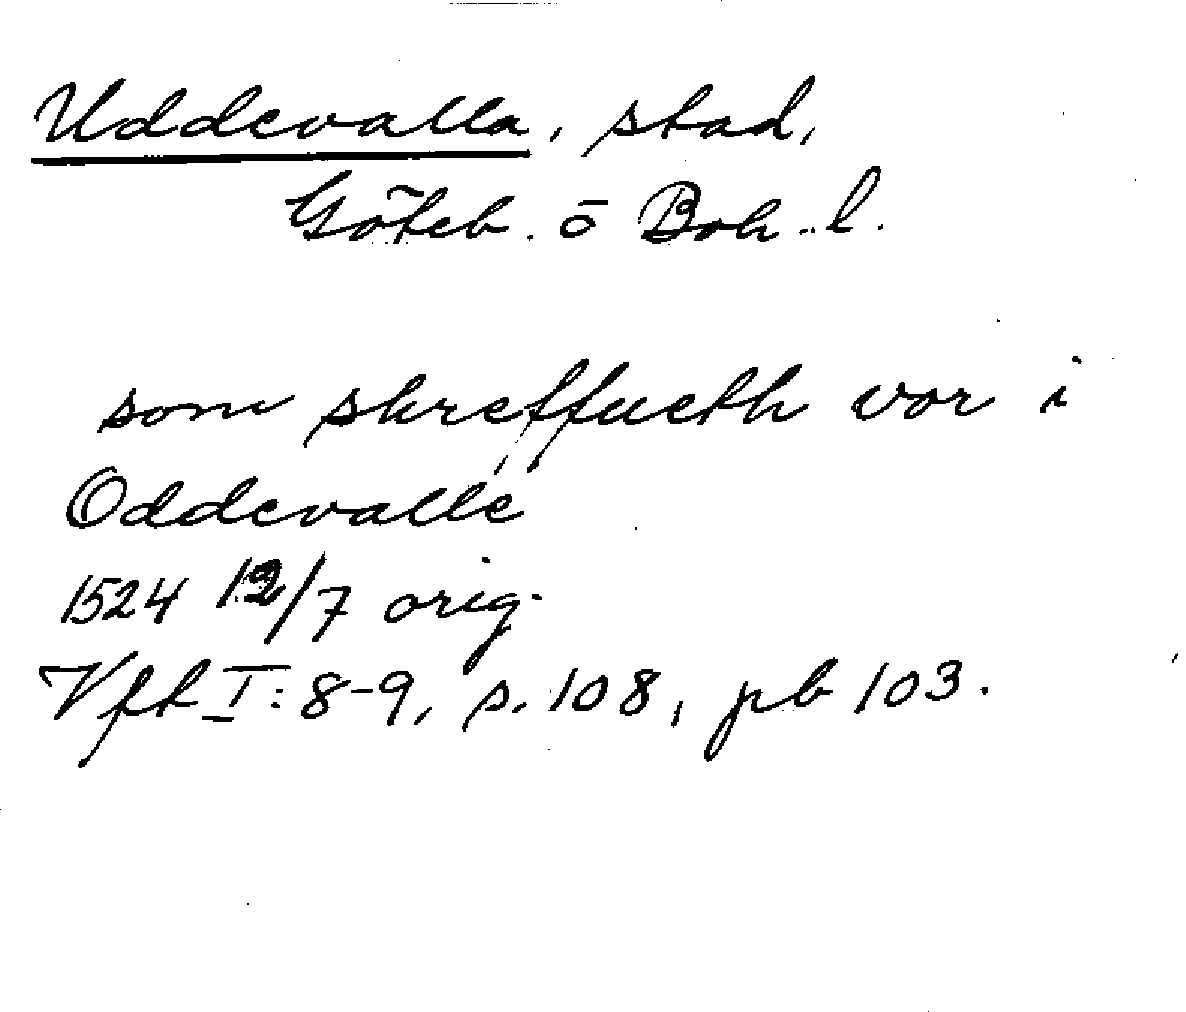 Uddevalla, stad,
Göteb. o Boh. l.
som skreffueth vor i
Oddevalle
1524 12/7 orig.
Vft I: 8-9, s. 108, pb 103.